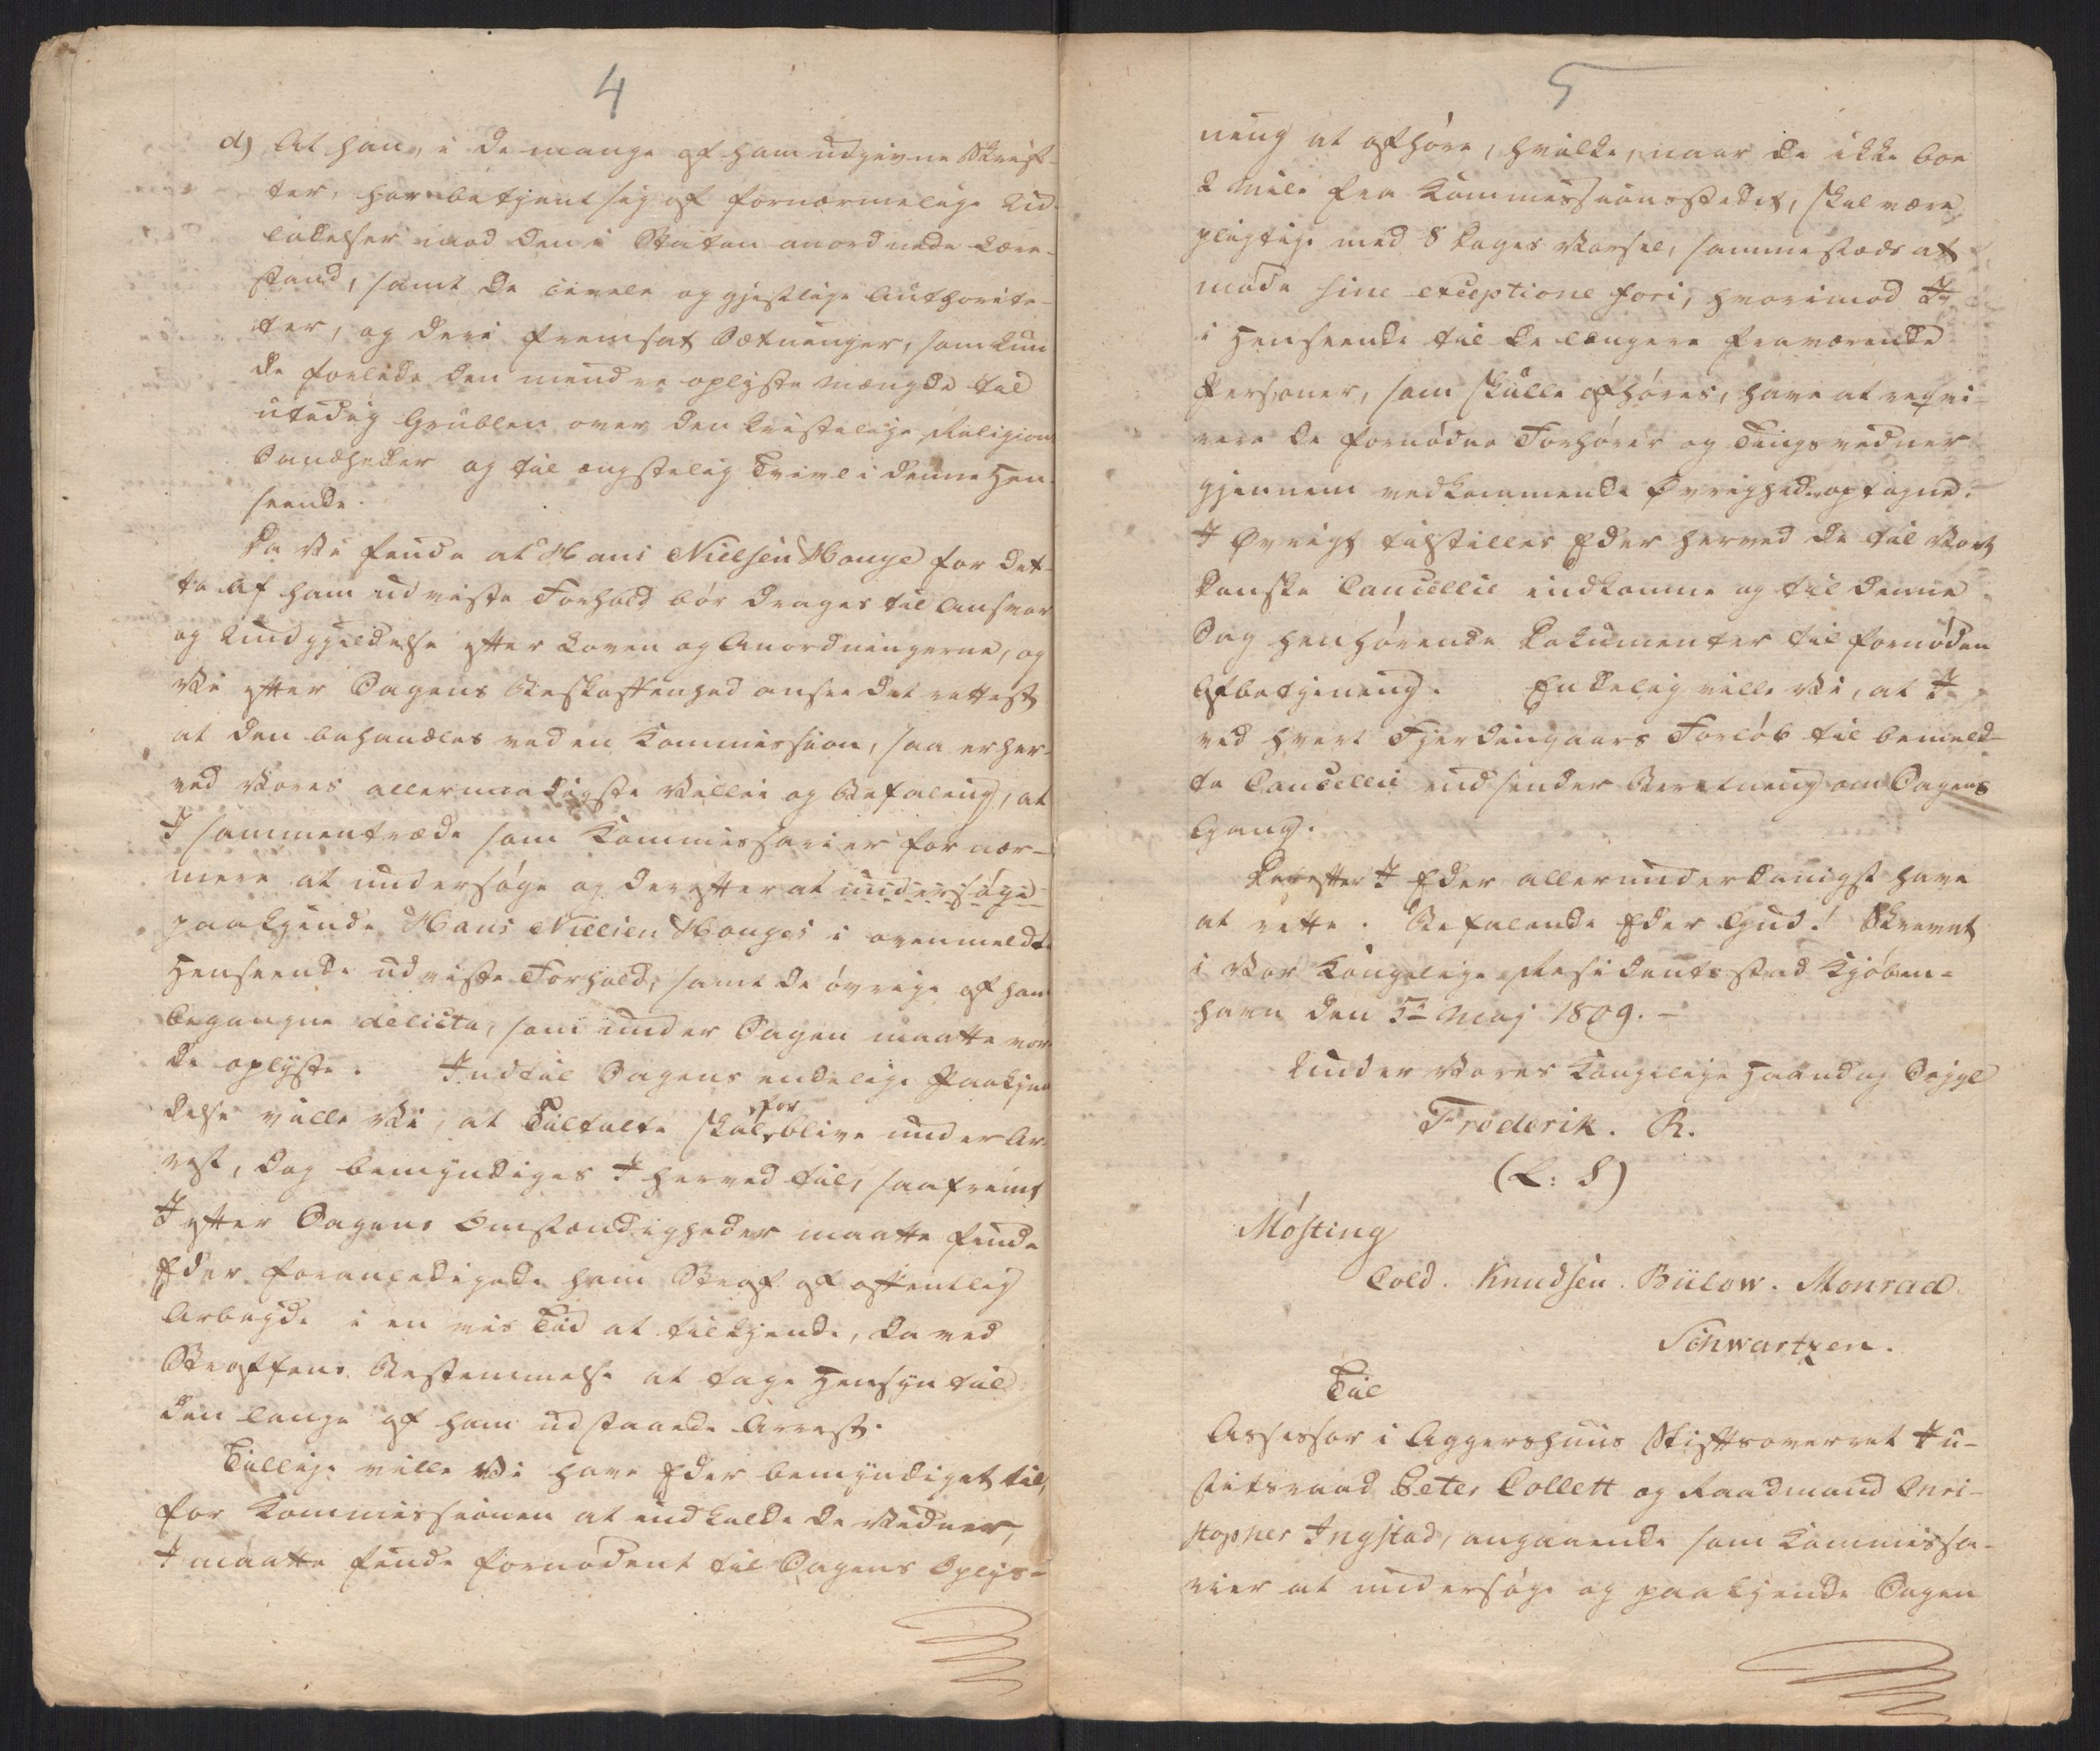 4
d) At han, i de mange af ham udgivne Skrif-
ter, har betjent sig af fornærmelige Ud-
ladelser mod den i Staten anordnede Lære-
stand, samt de civile og gjestlige Authorite-
ter, og deri fremsat Sætninger, som kun
de forlede den mindre oplyste Mængde til
utidig Grublen over den kristelige Religions
Sandheder og til ængstelig Tvivl i denne Hen-
seende.
Da Vi finde at Hans Nielsen Hauge for det-
te af ham udviste Forhold bör drages til Ansvar
og Undgjældelse efter Loven og Anordningerne, og
Vi efter Sagens Beskaffenhed ansee det rettest
at den behandles ved en Kommission, saa er her-
ved Vores allernaadigste Villie og Befaling, at
I sammentræde som Kommissarier for nær-
mere at undersöge og derefter at undersöge
paakjende Hans Nielsen Hauges i ovenmeldte
Henseende udviste Forhold, samt de övrige af ham
begangne delicta, som under Sagen maatte vor-
de oplyste. Indtil Sagens endelige Paakjen
delse ville Vi, at Tiltalte skal for blive under Ar-
rest, dog bemyndiges I herved til, saafremt
I efter Sagens Omstændigheder maatte finde
Eder foranledigede ham Straf af offentlig
Arbejde i en vis Tid at tilkjende, da ved
Straffens Bestemmelse at tage Hensyn til
den lange af ham udstaaede Arrest.
Tillige ville Vi have Eder bemyndiget til,
for Kommissionen at indkalde de Vidner,
I maatte finde fornödent til Sagens Oplys-
5
ning at afhöre, hvilke, naar de ikke boe
2 Mile fra Kommissionsstedet, skal være
pligtige med 8 Dages Varsel, sammesteds at
möde sine exceptione fori, hvorimod I
i Henseende til de længere fraværende
Personer, som skulle afhöres, have at reqvi-
rere de fornödne Forhörer og Tingsvidner
gjennem vedkommende Øvrigheder optagne.
I Øvrigt tilstilles Eder herved de til Vort
danske Cancellie indkomne og til denne
Sag henhörende Dokumenter til fornöden
Afbetjening. Endelig ville Vi, at I
ved hvert Fjerdingaars Forlöb til bemeld-
te Cancellie indsender Beretning om Sagens
Gang.
Derefter I Eder allerunderdanigst have
at rette. Befalende Eder Gud! Skrevet
i Vor Kongelige Residentsstad Kjöben-
havn den 5te Maj 1809. -
Under Vores Kongelige Haand og Segl
Frederik. R.
(L: S)
Mösting
Cold. Knudsen. Bülow. Monrad.
Schwartzen.
Til
Assessor i Aggershuus Stiftsoverret Ju-
stitsraad Peter Collett og Raadmand Chri-
stopher Ingstad, angaaende som Kommissa-
rier at undersöge og paakjende Sagen